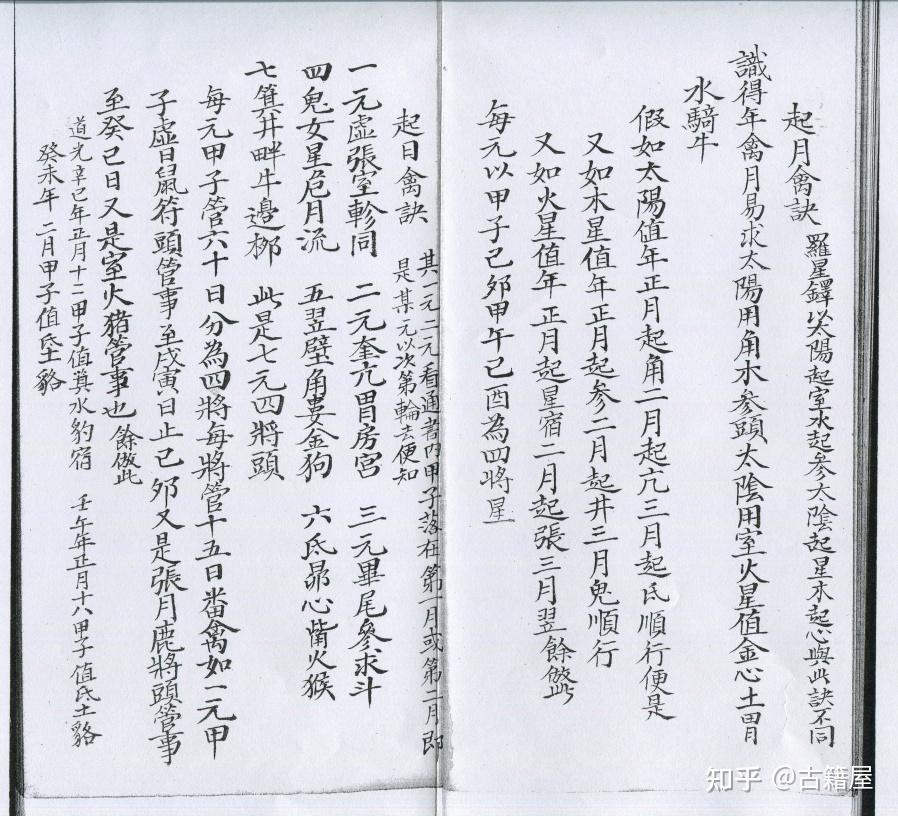 起月禽訣 羅星鐸以太陽起室水起參太陰起星木起心與此訣不同
識得年禽月易求太陽用角木參頭太陰用室火星值金心土胃
水騎牛
假如太陽值年正月起角二月起亢三月起氐順行便是
又如木星值年正月起參二月起井三月鬼順行
又如火星值年正月起星宿二月起張三月翌餘倣此
每元以甲子己夘甲午己酉為四將星
起日禽訣 其一元二元看通書內甲子落在第一月或第二月即
是某元以次第輪去便知
一元虛張室軫同 二元奎亢胃房宮 三元畢尾參求斗
四鬼女星危月流 五翌壁角婁金狗 六氐昴心觜火猴
七箕井畔牛邊栁 此是七元四將頭
每元甲子管六十日分為四將每將管十五日番禽如一元甲
子虛日鼠符頭管事至戌寅日止己夘又是張月鹿將頭管事
至癸己日又是室火猪管事也 餘倣此
道光辛巳年正月十二甲子值箕水豹宿 壬午年正月十八甲子值氐土貉
癸未年二月甲子值氐土貉
知乎 @古籍屋